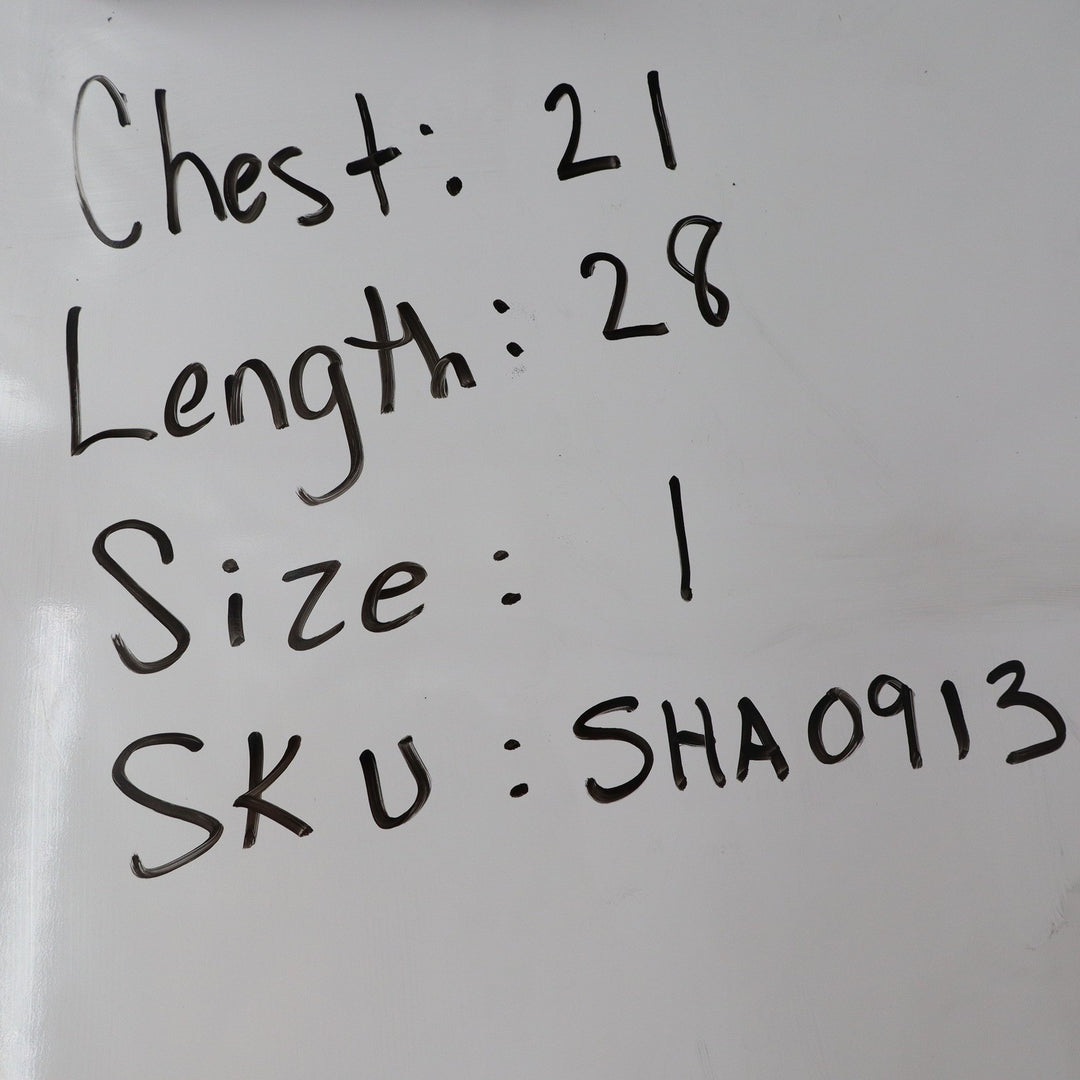 Chest: 21
Length: 28
Size: 1
SKU: SHA0913